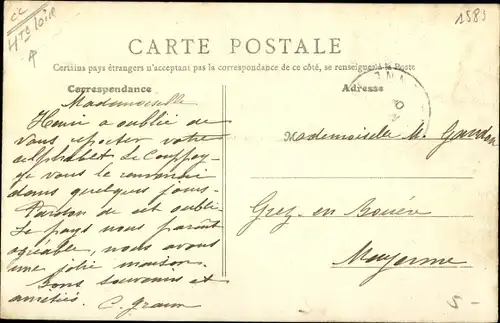 CC
1585
Hte Loire
CARTE POSTALE
Certains pays étrangers n'acceptant pas la correspondance de ce côté, se renseigner à la Poste
Correspondance
Adresse
Mademoiselle
Henri a oublié de
vous reporter votre
alphabet Le Couffoy
je vous le renverrai
dans quelques jours.
Pardon de cet oubli
Le pays nous paraît
agréable, nous avons
une jolie maison.
Bons souvenirs et
amitiés
Mademoiselle M.
Grez en Bouère
Mayenne
5-